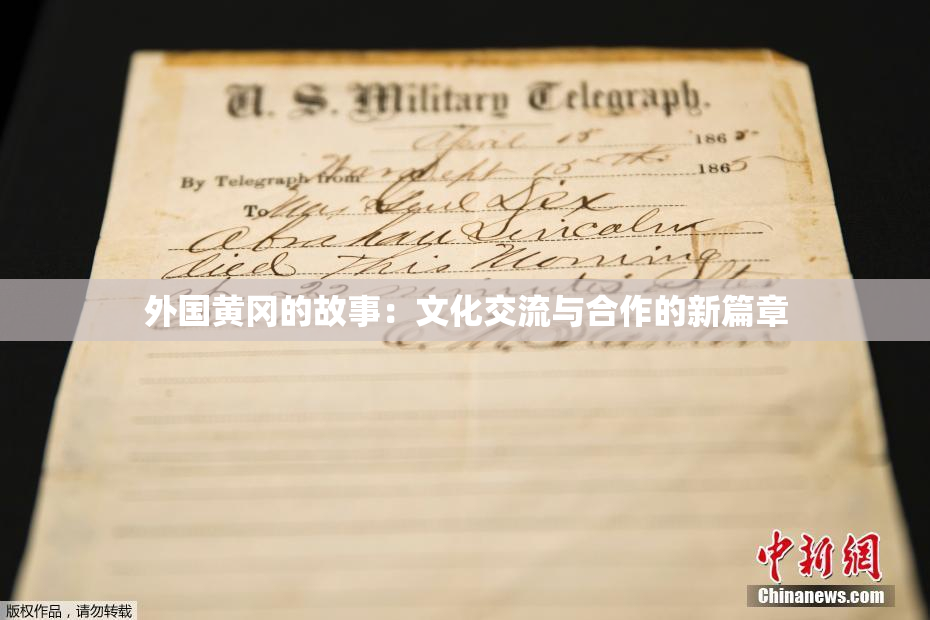 U. S. Military Telegraph.
April 15 1865
By Telegraph from War Dept 15th 1865
To Maj Genl Dix
Abraham Lincoln
died This Morning
at 22 minutes after
外国黄冈的故事：文化交流与合作的新篇章
E. M. Stanton
中新网
Chinanews.com
版权作品，请勿转载